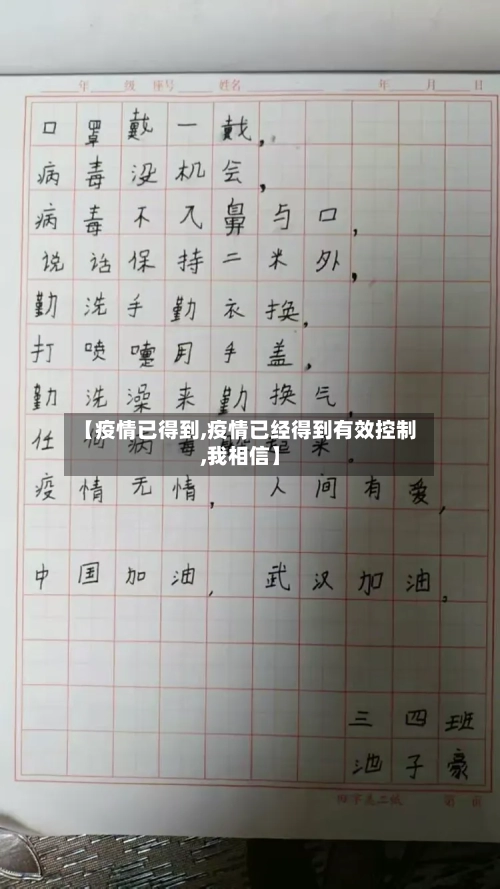 年 级 座号 姓名 年 月 日
口罩戴一戴，
病毒没机会，
病毒不入鼻与口，
说话保持二米外，
勤洗手勤衣换，
打喷嚏用手盖，
勤洗澡来勤换气，
【疫情已得到,疫情已经得到有效控制
,我相信】
任何病毒 起来。
疫情无情，人间有爱，
中国加油，武汉加油。
三四班
池子豪
第 页